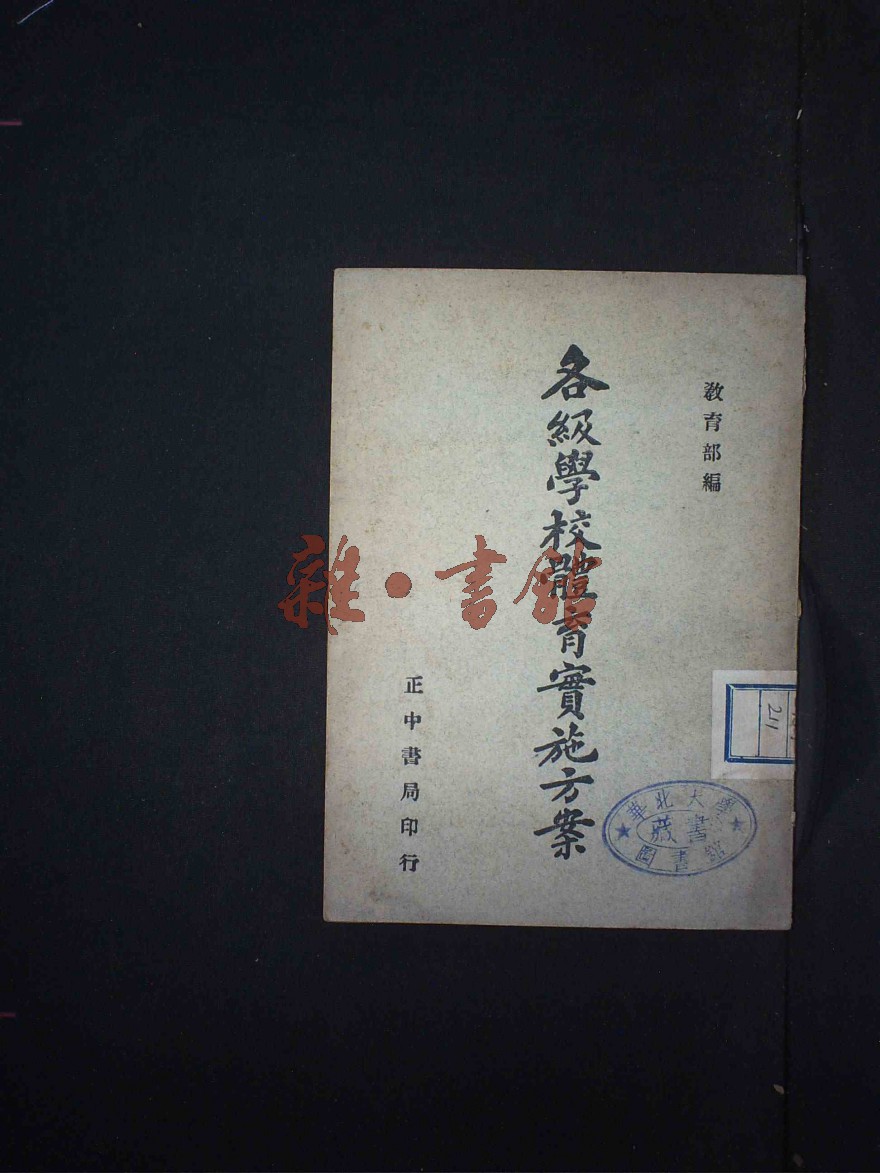 教育部編
各級學校體育實施方案
正中書局印行
雜·書館
華北大學
藏書
圖書館
211